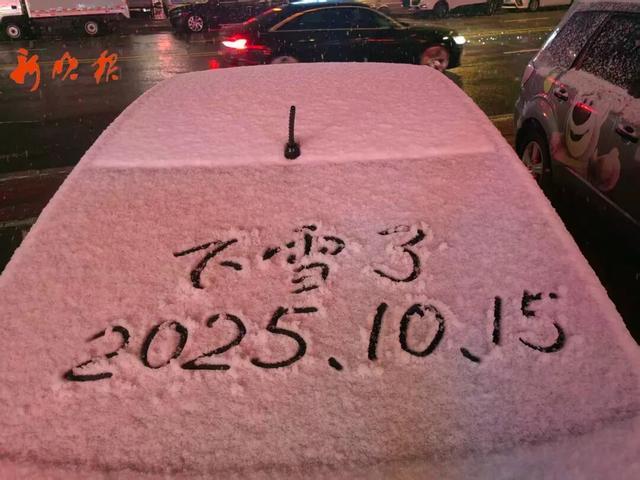 新晚报
下雪了
2025.10.15